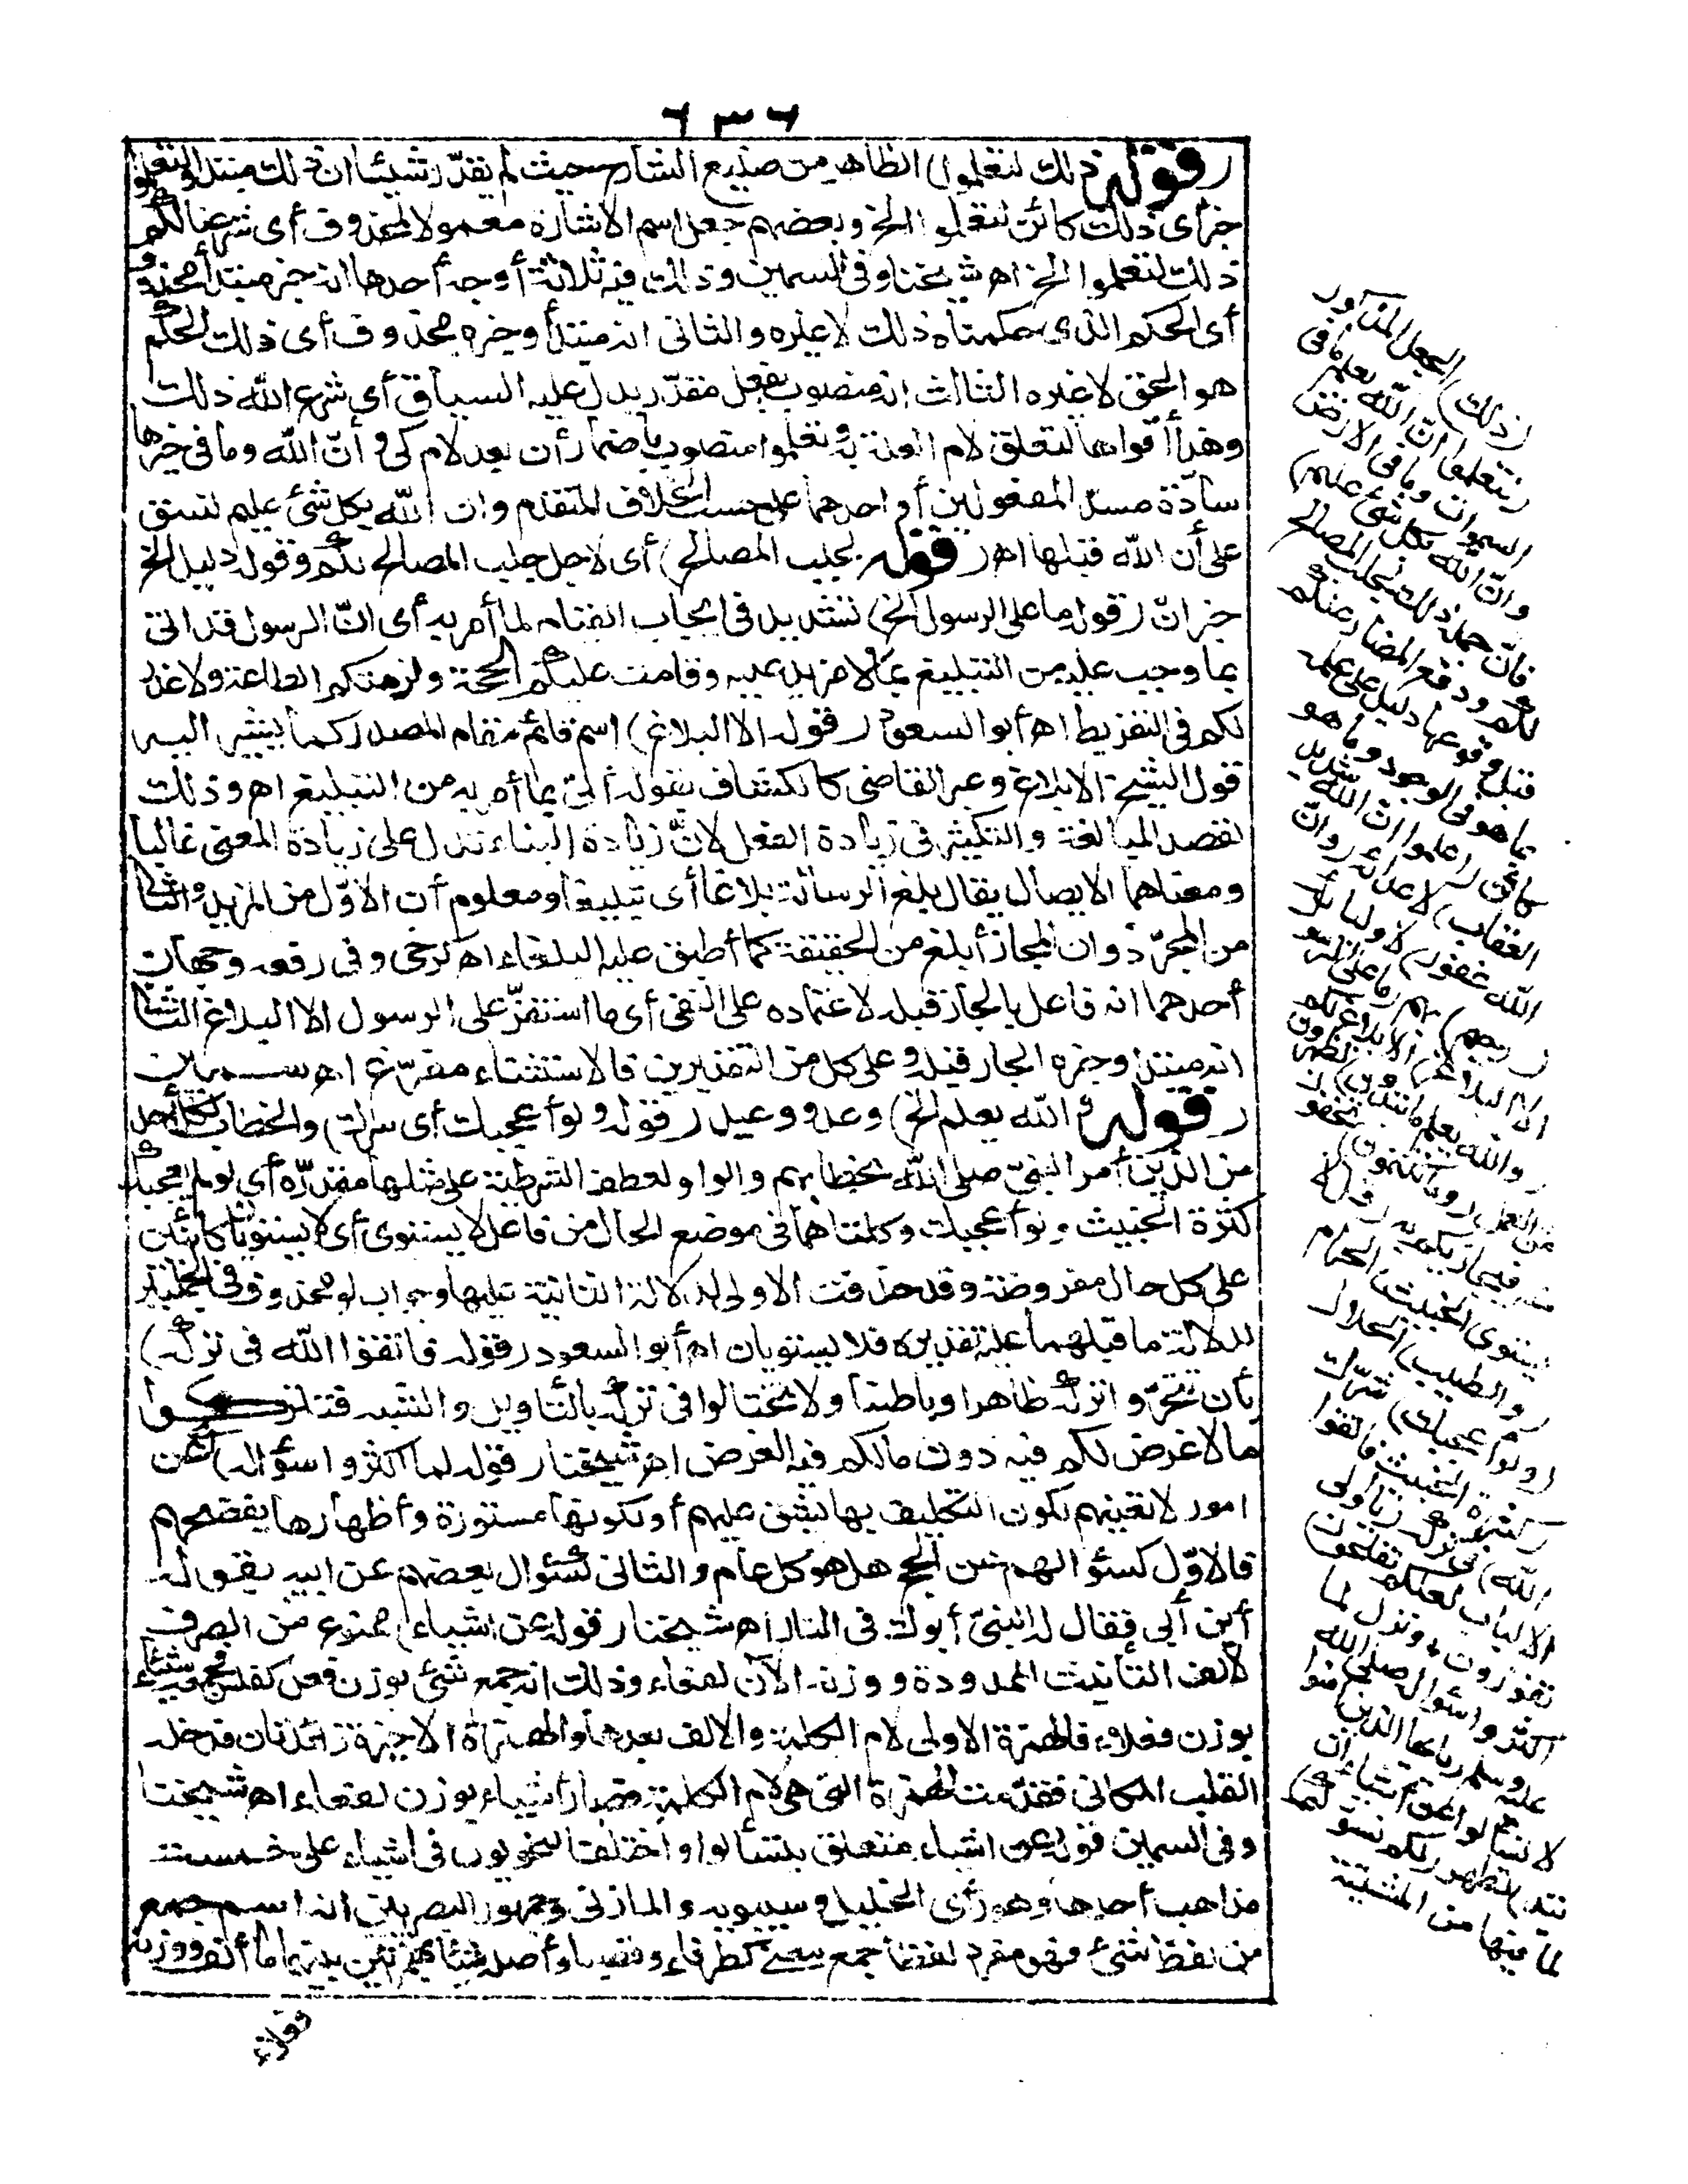 ٦٣٦
(قوله ذلك لتعلموا) الظاهر من صنيع الشارح حيث لم يقدّر شيئا ان ذلك مبتدأ ولتعلموا
خبر أى ذلك كائن لتعلموا الخ وبعضهم جعل اسم الاشارة معمولا لمحذوف أى شرعنا لكم
ذلك لتعلموا الخ اه شيخنا وفى السمين وذلك فيه ثلاثة أوجه أحدها انه خبر مبتدأ محذوف
أى الحكم الذى حكمناه ذلك لاغيره والثانى انه مبتدأ وخبره محذوف أى ذلك الحكم
هو الحق لاغيره الثالث انه منصوب بفعل مقدّر يدل عليه السياق أى شرع الله ذلك
وهذا أقواها لتعلق لام العلة به وتعلموا منصوب باضمار أن بعد لام كى و أنّ الله وما فى خبرها
سادّة مسدّ المفعولين أو احدهما على حسب الخلاف المتقدم وان الله بكل شئ عليم نسق
على أن الله قبلها اه (قوله لجلب المصالح) أى لاجل جلب المصالح لكم وقوله دليل الخ
خبر انّ (قوله ما على الرسول الخ) تشديد فى ايجاب القيام لما أمر به أى انّ الرسول قد اتى
بما وجب عليه من التبليغ بما لا مزيد عليه وقامت عليكم الحجة ولزمتكم الطاعة ولا عذر
لكم فى التفريط اه أبو السعود (قوله الا البلاغ) اسم قائم مقام المصدر كما يشير اليه
قول الشيخ الابلاغ وعبر القاضى كالكشاف بقوله أتى بما أمر به من التبليغ اه وذلك
لقصد المبالغة والتكثير فى زيادة الفعل لانّ زيادة البناء تدل على زيادة المعنى غالبا
ومعناهما الايصال يقال بلغ الرسالة بلاغا أى تبليغا ومعلوم أن الاوّل من المزيد والثانى
من المجرّد وان المجاز أبلغ من الحقيقة كما أطبق عليه البلغاء اه كرخى وفى رفعه وجهان
أحدهما انه فاعل بالجار قبله لاعتماده على النفى أى ما استقرّ على الرسول الا البلاغ الثانى
انه مبتدأ وخبره الجار قبله وعلى كل من التقديرين فالاستثناء مفرّغ اه سمين
(قوله و الله يعلم الخ) وعد ووعيد (قوله ولو أعجبك أى سرك) والخطاب لكل أحد
من الذين أمر النبىّ صلى الله بخطابهم والواو لعطف الشرطية على مثلها مقدّره أى لو لم تعجبك
كثرة الخبيث ولو أعجبك وكلتاهما فى موضع الحال من فاعل لا يستوى أى لا يستويان كائنين
على كل حال مفروضة وقد حذفت الاولى لدلالة الثانية عليها وجواب لو محذوف فى الجملتين
لدلالة ما قبلهما عليه تقديره فلا يستويان اه أبو السعود (قوله فاتقوا الله فى تركه)
بأن تتحرّوا تركه ظاهرا وباطنا ولا تحتالوا فى تركه بالتأويل والشبه فتتركوا
ما لا غرض لكم فيه دون ما لكم فيه الغرض اه شيخنا (قوله لما اكثروا سؤاله) أى عن
امور لا تعنيهم لكون التكليف بها يشق عليهم أو لكونها مستورة وأظهارها يفضحهم
فالاوّل كسؤالهم عن الحج هل هو كل عام والثانى كسؤال بعضهم عن ابيه بقوله
أين أبى فقال له النبىّ أبوك فى النار اه شيخنا (قوله عن اشياء) ممنوع من الصرف
لالف التأنيث الممدودة ووزنه الآن لفعاء وذلك انه جمع شئ بوزن فعل كفلس فهو شيئاء
بوزن فعلاء فالهمزة الاولى لام الكلمة والالف بعدها والهمزة الاخيرة زائدتان فدخله
القلب المكانى فقدّمت الهمزة التى هى لام الكلمة فصار أشياء بوزن لفعاء اه شيخنا
وفى السمين قوله عن اشياء متعلق بتسألوا واختلف النحويون فى أشياء على خمسة
مذاهب أحدها وهو رأى الخليل وسيبويه والمازنى وجمهور البصريين انه اسم جمع
من لفظ شئ فهو مفرد لفظا جمع معنى كطرفاء وقصباء وأصله شيئاء بهمزتين بينهما ألف ووزنه
فعلاء
(ذلك) الجعل المذكور
(لتعلموا انّ الله يعلم ما فى
السموات وما فى الارض
وانّ الله بكل شئ عليم)
فانّ جعله ذلك لجلب المصالح
لكم ودفع المضار عنكم
قبل وقوعها دليل على علمه
بما هو فى الوجود وما هو
كائن (اعلموا انّ الله شديد
العقاب) لاعدائه (وانّ
الله غفور) لاوليائه
(رحيم) بهم (ما على الرسو
الا البلاغ) الابلاغ لكم
(والله يعلم ما تبدون) تظهرون
من العمل (وما تكتمون) تخفو
منه فيجازيكم به (قل لا
يستوى الخبيث) الحرام
(والطيب) الحلال
(ولو أعجبك) سرّك
(كثرة الخبيث فاتقوا
الله) فى تركه (يا أولى
الالباب لعلكم تفلحون)
تفوزون * ونزل لما
اكثروا سؤاله صلى الله
عليه وسلم (يا ايها الذين آمنوا
لا تسألوا عن أشياء ان
تبد) تظهر (لكم تسؤكم)
لما فيها من المشقة